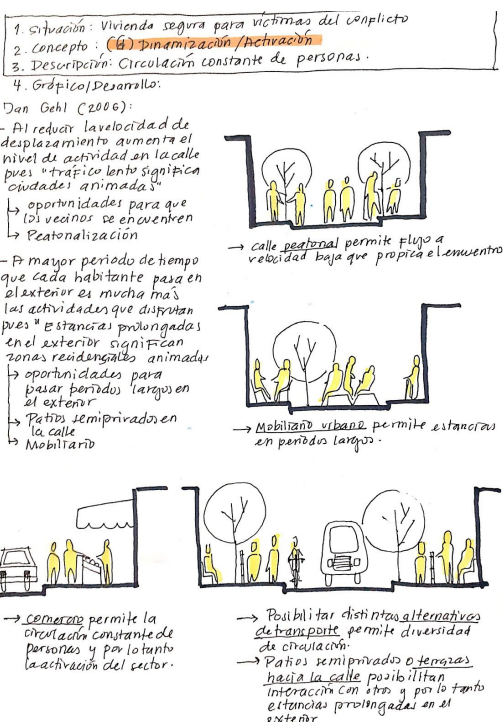 1. Situación: Vivienda segura para víctimas del conflicto
2. Concepto: (G) Dinamización/Activación
3. Descripción: Circulación constante de personas.
4. Gráfico/Desarrollo:
Jan Gehl (2006):
- Al reducir la velocidad de
desplazamiento aumenta el
nivel de actividad en la calle
pues "tráfico lento significa
ciudades animadas"
↳ oportunidades para que
los vecinos se encuentren
↳ Peatonalización
→ calle peatonal permite flujo a
velocidad baja que propicia el encuentro
- A mayor periodo de tiempo
que cada habitante pasa en
el exterior es mucha más
las actividades que disfrutan
pues "Estancias prolongadas
en el exterior significan
zonas recidenciales animadas
↳ oportunidades para
pasar periodos largos en
el exterior
↳ Patios semiprivados en
la calle
↳ Mobiliario
→ Mobiliario urbano permite estancias
en periodos largos.
→ comercio permite la
circulación constante de
personas y por lo tanto
la activación del sector.
→ Posibilitar distintas alternativas
de transporte permite diversidad
de circulación.
→ Patios semiprivados o terrazas
hacia la calle posibilitan
interacción con otros y por lo tanto
estancias prolongadas en el
exterior